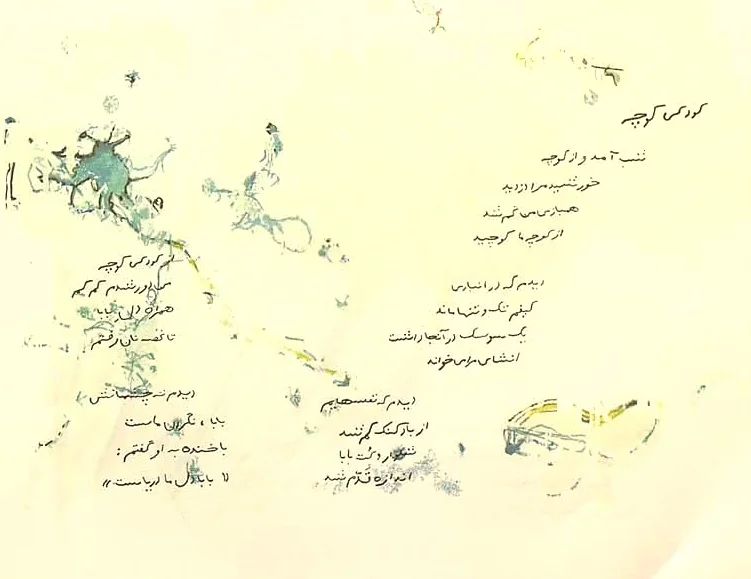 کودکی کوچه
شب آمد و از کوچه
خورشید مرا دزدید
همبازی من گم شد
از کوچه ما کوچید
دیدم که در انباری
کیفم تک و تنها ماند
یک سوسک در آنجا داشت
انشای مرا می خواند
دیدم که نفسهایم
از بادکنک گم شد
شلوار و کت بابا
اندازه قدّم شد
از کودکی کوچه
من دور شدم کم کم
همراه بابا
تا غصه نان رفتم
دیدم که چشمانش
بابا، نگران ماست
با خنده به او گفتم:
« بابا دل ما دریاست »